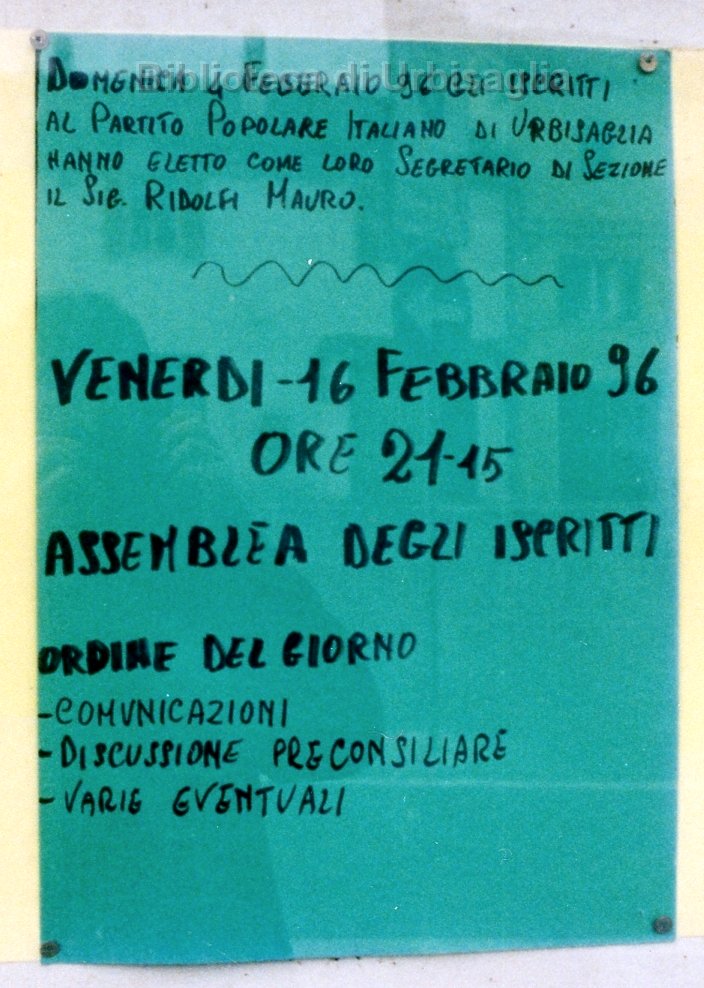 Biblioteca di Urbisaglia
DOMENICA 4 FEBBRAIO 96 GLI ISCRITTI
AL PARTITO POPOLARE ITALIANO DI URBISAGLIA
HANNO ELETTO COME LORO SEGRETARIO DI SEZIONE
IL SIG. RIDOLFI MAURO.
VENERDI - 16 FEBBRAIO 96
ORE 21-15
ASSEMBLEA DEGLI ISCRITTI
ORDINE DEL GIORNO
- COMUNICAZIONI
- DISCUSSIONE PRECONSILIARE
- VARIE EVENTUALI